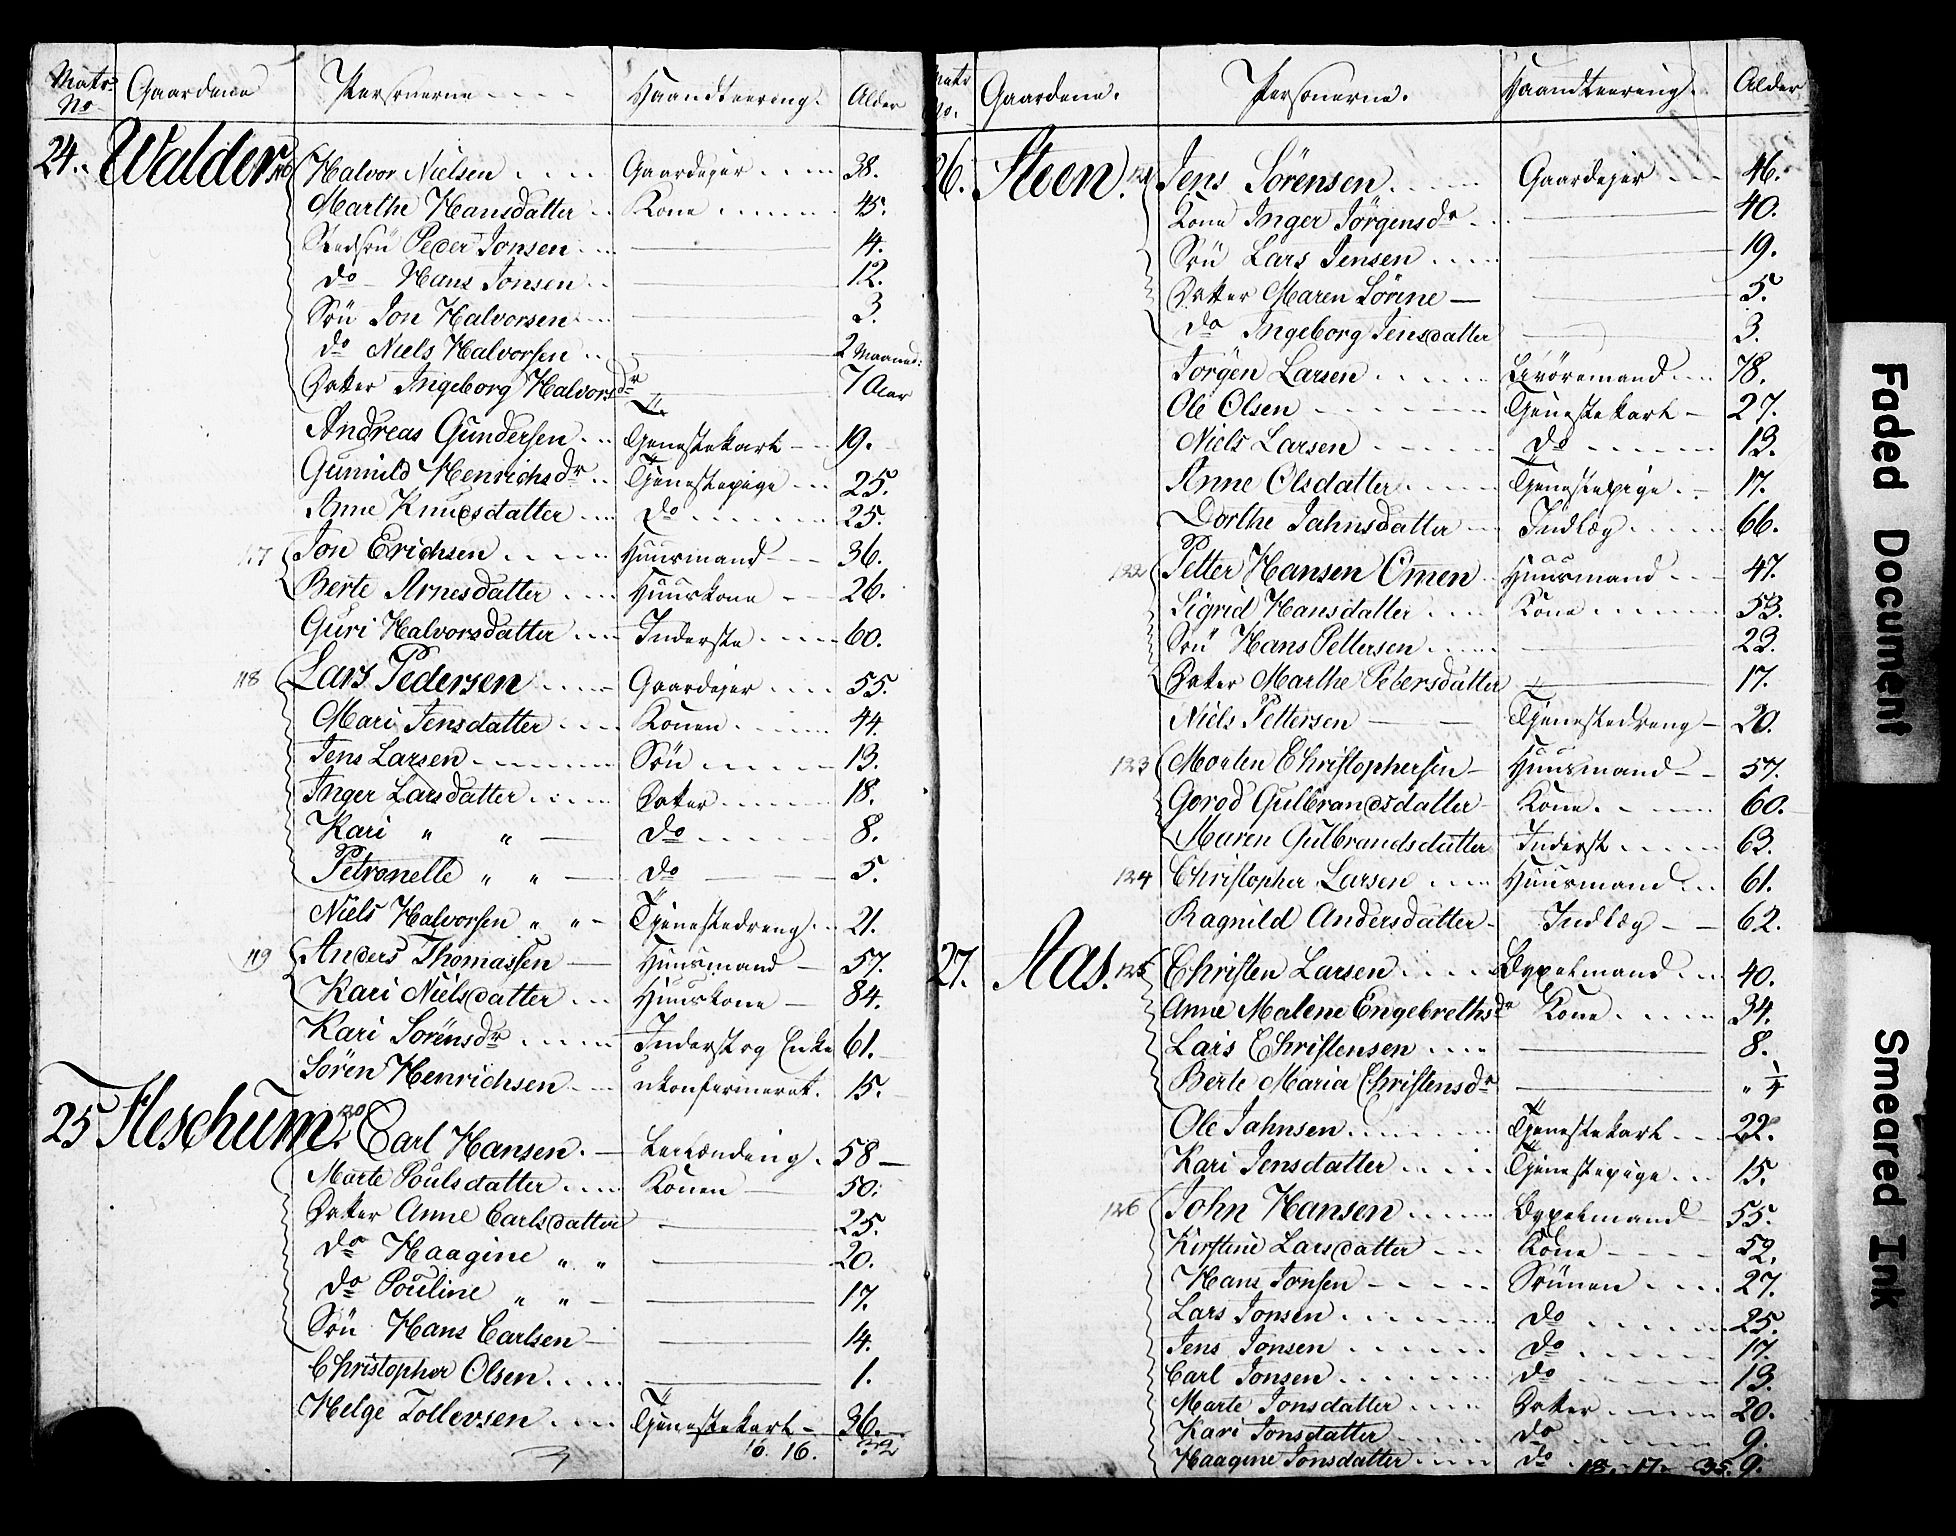 Matr: No Gaardene Personerne Haandteering. Alder
24. Walder 116 Halvor Nielsen Gaardejer 38.
Marthe Hansdatter Kone 45.
Stedsøn Peder Jonsen 14.
do Hans Jonsen 12.
Søn Jon Halvorsen 3.
do Niels Halvorsen 2 Maaned:
Datter Ingeborg Halvorsdr 7 Aar
Andreas Gundersen Tjenestekarl 19.
Gunnild Henrichsdr Tjenestepige 25.
Anne Knudsdatter do 25.
117 Jon Erichsen Huusmand 36.
Berte Arnesdatter Huuskone 26.
Guri Halvorsdatter Inderste 60.
118 Lars Pedersen Gaardejer 55.
Mari Jensdatter Konen 44.
Jens Larsen Søn 13.
Inger Larsdatter Dater 18.
Kari " " do 8.
Petronelle " " do 5.
Niels Halvorsen " " Tjenestedreng 21.
119 Anders Thomassen Huusmand 57.
Kari Nielsdatter Huuskone 84.
Kari Sörensdr Inderst og Enke 61.
Sören Henrichsen ukonfirmeret. 15.
25 Fleschum 120 Carl Hansen Leilænding 58
Marte Poulsdatter Konen 50.
Datter Anne Carlsdatter 25.
do Haagine " " 20.
do Pouline " " 17.
Søn Hans Carlsen 14.
Christopher Olsen 1.
Helge Tollevsen Tjenestekarl 36.
16. 16. 32
Matr No. Gaardene. Personerne. Haandteering. Alder
26. Steen. 121 Jens Sörensen Gaardejer 46.
Kone Inger Jörgensdr 40.
Søn Lars Jensen 19.
Datter Maren Sörine 5.
do Ingeborg Jensdatter 3.
Jörgen Larsen Livöremand 78.
Ole Olsen Tjenestekarl 27.
Niels Larsen do 13.
Anne Olsdatter Tjenestepige 17.
Dorthe Jahnsdatter Indlæg 66.
122 Petter Hansen Omen Huusmand 47.
Sigrid Hansdatter Kone 53.
Søn Hans Pettersen 23.
Dater Marthe Petersdatter 17.
Niels Pettersen Tjenestedreng 20.
123 Morten Christophersen Huusmand 57.
Gorod Gulbrandsdatter Kone 60.
Maren Gulbrandsdatter Inderst 63.
124 Christopher Larsen Huusmand 61.
Ragnild Andersdatter Indlæg 62.
27. Aas. 125 Christen Larsen Bygselmand 40.
Anne Malene Engebrethsdr Kone 34.
Lars Christensen 8.
Berte Maria Christensdr " ¼
Ole Jahnsen Tjenestekarl 22.
Kari Jensdatter Tjenestepige 15.
126 John Hansen Bygselmand 55.
Kirstine Larsdatter Kone 52.
Hans Jonsen Sønnen 27.
Lars Jonsen do 25.
Jens Jonsen do 17.
Carl Jonsen do 13.
Marte Jonsdatter Dater 20.
Kari Jonsdatter do 9.
Haagine Jonsdatter do 9.
18. 17. 35.
Faded Document
Smeared Ink